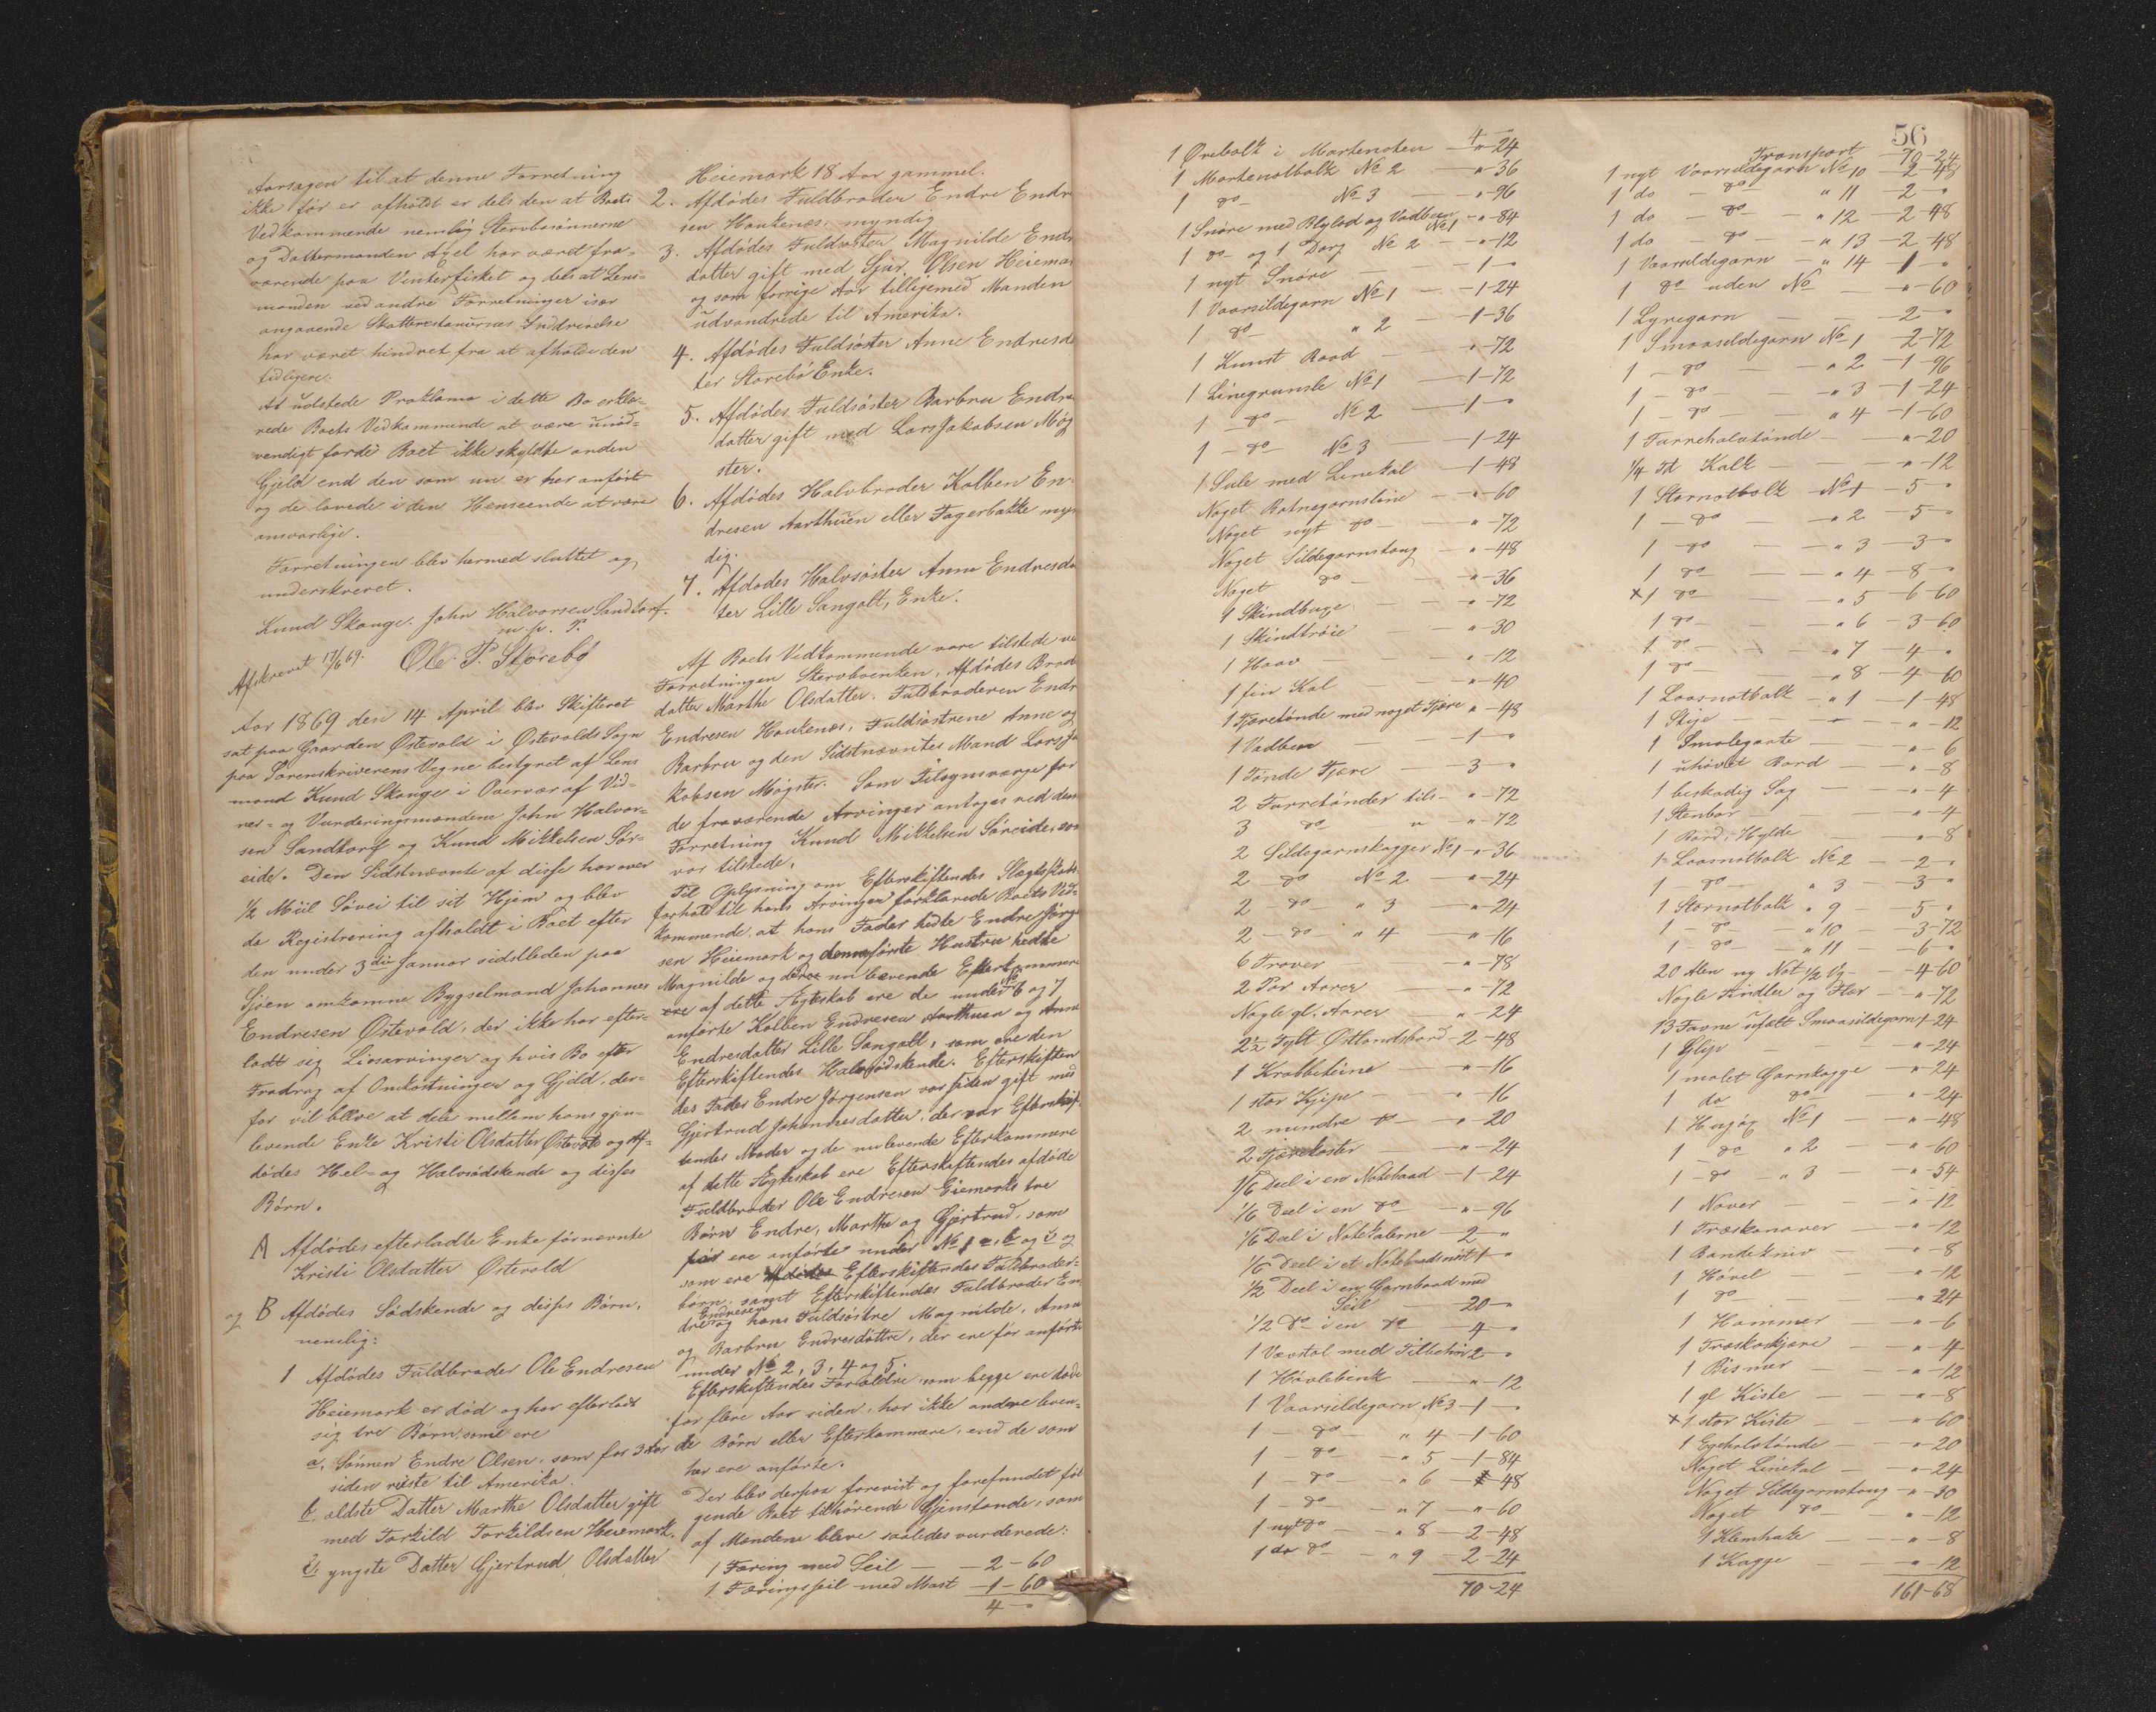 Aarsagen til at denne Forretning
ikke før er afholdt er dels den at Boets
Vedkommende nemlig Stervbosønnerne
og Dattermanden Axel har været fra-
værende paa Vinterfisket og dels at Lens-
manden ved andre Forretninger især
angaaende Skatterestancernes Inddrivelse
har været hindret fra at afholde den
tidligere.
At udstede Proklama i dette Bo erklæ-
rede Boets Vedkommende at være unød-
vendigt fordi Boet ikke skyldte anden
Gjeld end den som nu er her anført
og de lovede i den Henseende at være
ansvarlige.
Forretningen blev hermed sluttet og
underskrevet.
Knud Skauge. John Halvorsen Sandtorf.
m. p. P.
Afskrevet 17/6 69. Ole. P. Storebø
Aar 1869 den 14 April blev Skifteret
sat paa Gaarden Østevold i Østevolds Sogn
paa Sorenskriverens Vegne bestyret af Lens
mand Knud Skauge i Overvær af Vid-
ner- og Vurderingsmændene John Halvor-
sen Sandtorf og Knud Mikkelsen Sør-
eide. Den Sidstnævnte af disse har over
1/2 Miil Søvei til sit Hjem og blev
da Registrering afholdt i Boet efter
den under 3die Januar sidstleden paa
Sjøen omkomne Bygselmand Johannes
Endresen Østevold, der ikke har efter-
ladt sig Livsarvinger og hvis Bo efter
Fradrag af Omkostninger og Gjeld, der-
for vil blive at dele mellem hans gjen-
levende Enke Kristi Olsdatter Østevold og Af-
dødes Hel- og Halvsødskende og disses
Børn.
A Afdødes efterladte Enke førnævnte
Kristi Olsdatter Østevold
og B Afdødes Sødskende og disses Børn,
nemlig:
1 Afdødes Fuldbroder Ole Endresen
Heiemark er død og har efterladt
sig tre Børn, som ere
a, Sønnen Endre Olsen, som for 3 Aar
siden reiste til Amerika.
b, ældste Datter Marthe Olsdatter gift
med Torkild Torkildsen Heiemark.
c, yngste Datter Gjertrud Olsdatter
Heiemark 18 Aar gammel.
2. Afdødes Fuldbroder Endre Endre
sen Haukenæs, myndig
3. Afdødes Fuldsøster Magnilde Endres
datter gift med Sjur Olsen Heiemar
og som forrige Aar tilligemed Manden
udvandrede til Amerika.
4. Afdødes Fuldsøster Anne Endresda
ter Storebø Enke.
5. Afdødes Fuldsøster Barbru Endres
datter gift med Lars Jakobsen Møg
ster.
6. Afdødes Halvbroder Kolben En-
dresen Aarthuen eller Fagerbakke myn
dig.
7. Afdødes Halvsøster Anna Endresda
ter Lille Sangolt, Enke.
Af Boets Vedkommende vare tilstede ve
Forretningen Stervboenken, Afdødes Brod
datter Marthe Olsdatter. Fuldbroderen Endr
Endresen Haukenæs, Fuldsøstrene Anne og
Barbru og den Sidstnævntes Mand Lars Ja
kobsen Møgster. Som Tilsynsværge for
de fraværende Arvinger antoges ved den
Forretning Knud Mikkelsen Søreide, som
var tilstede.
Til Oplysning om Efterskiftendes Slægtskabs
forhold til hans Arvinger forklarede Boets Ved-
kommende at hans Fader hedte Endre Jørge
sen Heiemark og dennes første Hustru hedte
Magnilde og deres nu levende Efterkommere
ere af dette Ægteskab ere de under No 6 og 7
anførte Kolben Endresen Aarthuen og Anna
Endresdatter Lille Sangolt, som ere den
Efterskiftendes Halvsødskende. Efterskiften
des Fader Endre Jørgensen var siden gift med
Gjertrud Johannesdatter, der var Efterskif-
tendes Moder og de nulevende Efterkommere
af dette Ægteskab ere Efterskiftendes afdøde
Fuldbroder Ole Endresen Eiemarks tre
Børn Endre, Marthe og Gjertrud, som
før ere anførte under No 1 a, b og c og
som ere Afdødes Efterskiftendes Fuldbroder-
børn, samt Efterskiftendes Fuldbroder En
Endresen
dre og hans Fuldsøstre Magnilde, Anna
og Barbru Endresdøttre, der ere før anførte
under No 2, 3, 4 og 5.
Efterskiftendes Forældre som begge ere døde
for flere Aar siden, har ikke andre leven-
de Børn eller Efterkommere, end de som
her ere anførte.
Der blev derpaa forevist og forefundet føl
gende Boet tilhørende Gjenstande, som
af Mændene bleve saaledes vurderede:
1 Færing med Seil — 2-60
1 Færingsseil med Mast — 1-60
4 — "
4 —
1 Ørebolk i Mortenoten — " -24
1 Mortenotbolk No 2 — " -36
1 do No 3 — " -96
1 Snøre med Blylod og Vadbeen No 1 - " -84
1 do og 1 Dorg No 2 — " -12
1 nyt Snøre — 1 - "
1 Vaarsildegarn No 1 — 1-24
1 do " 2 — 1-36
1 Kunst Baad — " -72
1 Linegrunsle No 1 — 1-72
1 - do No 2 — 1 - "
1 - do No 3 — 1-24
1 Sule med Linekal — 1-48
Noget Botnegarnsline — " -60
Noget nyt do — " -72
Noget Sildegarnstoug — " -48
Noget do — " -36
1 Skindbuxe — " -72
1 Skindtrøie — " -30
1 Haav — " -12
1 fiin Kal — " -40
1 Tjæretønde med noget Tjære " -48
1 Vadbeen — 1 - "
1 Tønde Tjære — 3 - "
2 Tørretønder tils - " -72
3 do " " -72
2 Sildegarnskagger No 1 - " -36
2 - do No 2 — " -24
2 do - " 3 — " -24
2 - do - " 4 — " -16
6 Traver — " -78
2 Par Aarer — " -72
Nogle gl. Aarer — " -24
2 1/2 Tylt Østlandsbord - 2-48
1 Krabbeteine — " -16
1 stor Kjipe — " -16
2 mindre do — " -20
2 Tjærekoster — " -24
1/6 Deel i en Notebaad - 1-24
1/6 Deel i en do — " -96
1/6 Deel i Notekalerne - 2 - "
1/6 Deel i et Notebaadsnøst 1 - "
1/2 Deel i en Garnbaad med
Seil — 20 - "
1/2 do i en do — 4 - "
1 Vævstol med Tilbehør 2 - "
1 Høvlebenk — " -12
1 Vaarsildegarn No 3 - 1 - "
1 - do - " 4 - 1-60
1 - do - " 5 - 1-84
1 - do - " 6 - 48
1 - do - " 7 - " -60
1 nyt do - " 8 - 2-48
1 do do - " 9 - 2-24
70-24
56
Transport 70-24
1 nyt Vaarsildegarn No 10 — 2-48
1 do - do - " 11 - 2 - "
1 do - do - " 12 - 2-48
1 do - do - " 13 - 2-48
1 Vaarsildegarn - " 14 - 1 - "
1 do uden No — " -60
1 Lyregarn — 2 - "
1 Smaasildegarn No 1 - 2-72
1 - do - " 2 - 1-96
1 - do - " 3 - 1-24
1 - do - " 4 - 1-60
1 Furrehalvtønde — " -20
1/4 Td Kalk — " -12
1 Stornotbolk No 1 - 5 - "
1 - do - " 2 - 5 - "
1 - do - " 3 - 3 - "
1 do - " 4 - 8 - "
x 1 do - " 5 - 6-60
1 do - " 6 - 3-60
1 do - " 7 - 4 - "
1 do - " 8 - 4-60
1 Laasnotbolk - " 1 - 1-48
1 Stige — " -12
1 Smalegarte — " -6
1 uhøvlet Bord — " -8
1 beskadig Sag — " -4
1 Stenbor — " -4
1 Bord, Hylde — " -8
1 Laasnotbolk No 2 — 2 - "
1 - do - " 3 — 3 - "
1 Stornotbolk " 9 — 5 - "
1 - do - " 10 — 3-72
1 - do - " 11 — 6 - "
20 Alen ny Not 1/2 Vg - 4-60
Nogle Kindler og Flær — " -72
13 Favne ufælt Smaasildegarn 1-24
1 Glip — " -24
1 malet Garnkagge — " -24
1 do do — " -24
1 Husjøg No 1 — " -48
1 do - " 2 — " -60
1 - do - " 3 — " -54
1 Naver — " -12
1 Træskonaver — " -12
1 Bandekniv — " -8
1 Høvel — " -12
1 do — " -24
1 Hammer — " -6
1 Træskoskjære — " -4
1 Bismer — " -12
1 gl Kiste — " -8
x 1 stor Kiste — " -60
1 Egehalvtønde — " -20
Noget Linekal — " -24
Noget Sildegarnstoug - " -30
Noget do — " -12
1 Klemhake — " -8
1 Kagge — " -12
161-68